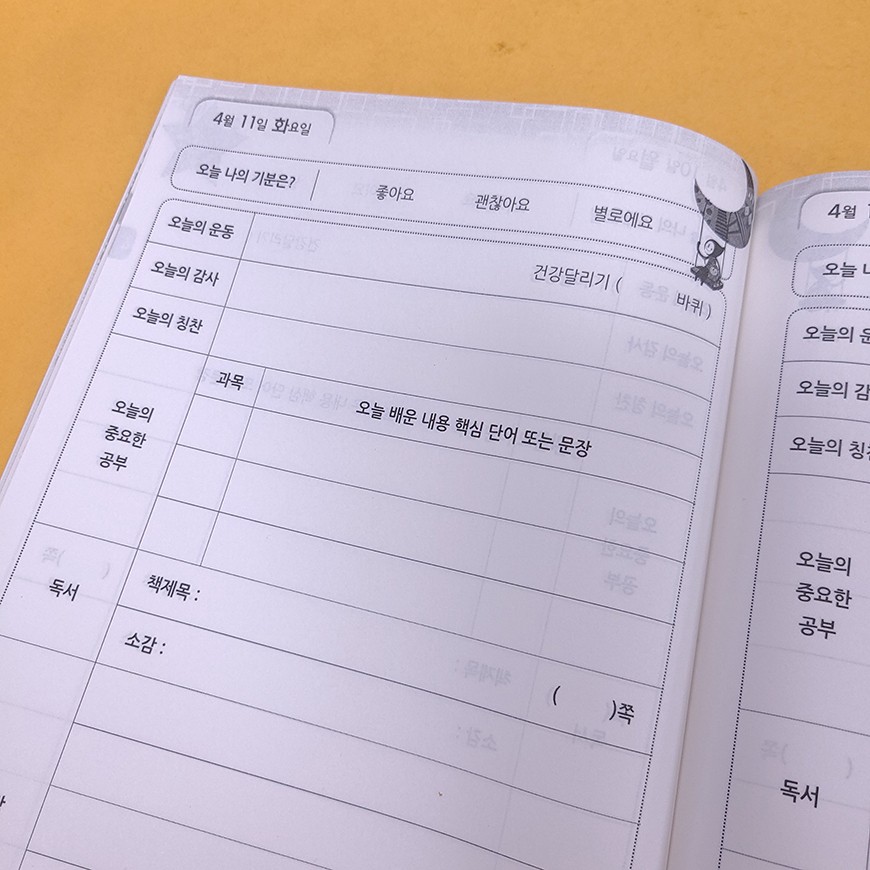 4월 11일 화요일
오늘 나의 기분은? 좋아요 괜찮아요 별로에요
오늘의 운동 건강달리기 ( 바퀴 )
오늘의 감사
오늘의 칭찬
오늘의
중요한
공부
과목 오늘 배운 내용 핵심 단어 또는 문장
독서
책제목 :
( )쪽
소감 :
4월
오늘
오늘의
오늘의
오늘의
오늘의
중요한
공부
독서